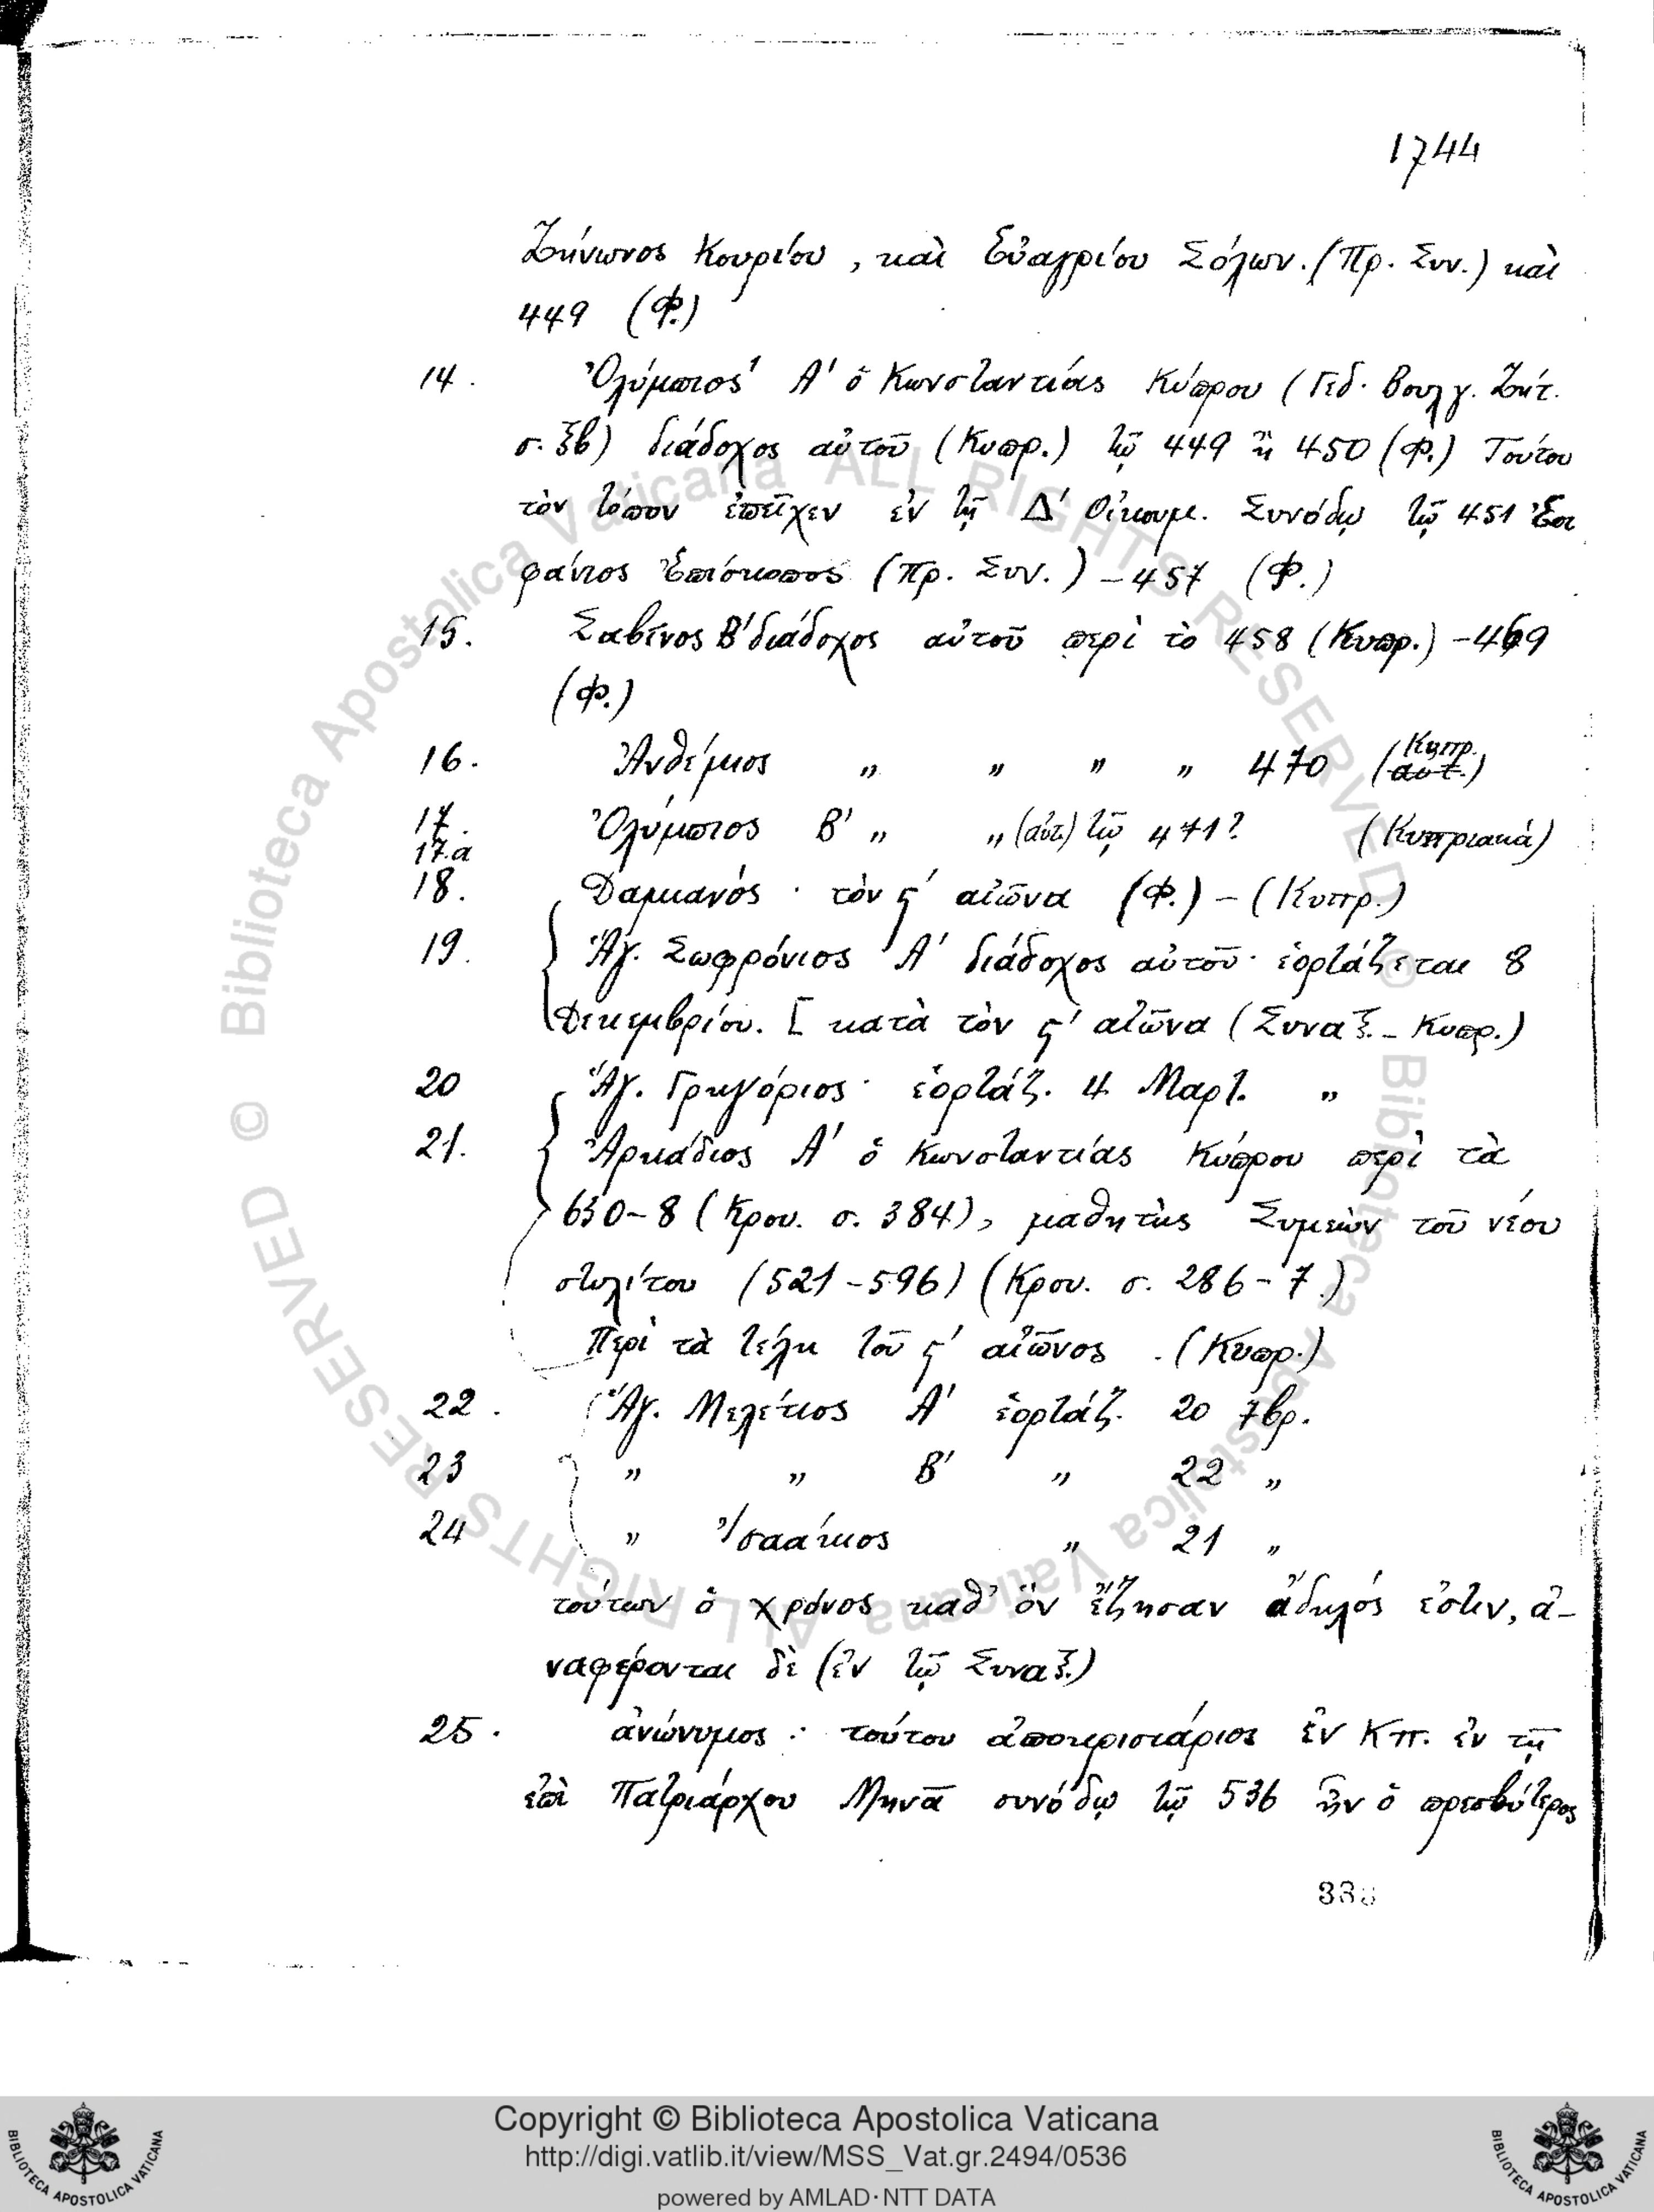 1744
Ζήνωνος Κουρίου, καὶ Εὐαγρίου Σόλων. (Πρ. Συν.) καὶ
449 (Φ.)
14. Ὀλύμπιος Α' ὁ Κωνσταντίας Κύπρου (Γεδ. Βουλγ. Ζήτ.
σ. ξβ) διάδοχος αὐτοῦ (Κυπρ.) τῷ 449 ἢ 450 (Φ.) Τούτου
τὸν τόπον ἐπεῖχεν ἐν τῇ Δ' Οἰκουμ. Συνόδῳ τῷ 451 Ἐπι
φάνιος Ἐπίσκοπος (Πρ. Συν.) – 457 (Φ.)
15. Σαβῖνος Β' διάδοχος αὐτοῦ περὶ τὸ 458 (Κυπρ.) – 469
(Φ.)
16. Ἀνθέμιος „ „ „ „ 470 (Κυπρ.)
17. Ὀλύμπιος Β' „ „ (αὐτ) τῷ 471? (Κυπριακά)
17.α
18. Δαμιανός · τὸν ϛ' αἰῶνα (Φ.) – (Κυπρ.)
19. Ἁγ. Σωφρόνιος Α' διάδοχος αὐτοῦ· ἑορτάζεται 8
Δεκεμβρίου. [ κατὰ τὸν ϛ' αἰῶνα (Συναξ. – Κυπρ.)
20 Ἁγ. Γρηγόριος · ἑορτάζ. 4 Μαρτ. „
21. Ἀρκάδιος Α' ὁ Κωνσταντίας Κύπρου περὶ τὰ
630–8 (Κρου. σ. 384), μαθητὴς Συμεὼν τοῦ νέου
στυλίτου (521–596) (Κρου. σ. 286–7.)
Περὶ τὰ τέλη τοῦ ϛ' αἰῶνος. (Κυπρ.)
22. Ἁγ. Μελέτιος Α' ἑορτάζ. 20 7βρ.
23 „ „ Β' „ 22 „
24 „ Ἰσαάκιος „ 21 „
τούτων ὁ χρόνος καθ' ὃν ἔζησαν ἄδηλός ἐστιν, ἀ–
ναφέρονται δὲ (ἐν τῷ Συναξ.)
25. ἀνώνυμος · τούτου ἀποκρισιάριος ἐν Κπ. ἐν τῇ
ἐπὶ Πατριάρχου Μηνᾶ συνόδῳ τῷ 536 ἦν ὁ πρεσβύτερος
Copyright © Biblioteca Apostolica Vaticana
http://digi.vatlib.it/view/MSS_Vat.gr.2494/0536
powered by AMLAD·NTT DATA
BIBLIOTECA APOSTOLICA VATICANA
BIBLIOTECA APOSTOLICA VATICANA
© Biblioteca Apostolica Vaticana ALL RIGHTS RESERVED © Biblioteca Apostolica Vaticana ALL RIGHTS RESERVED